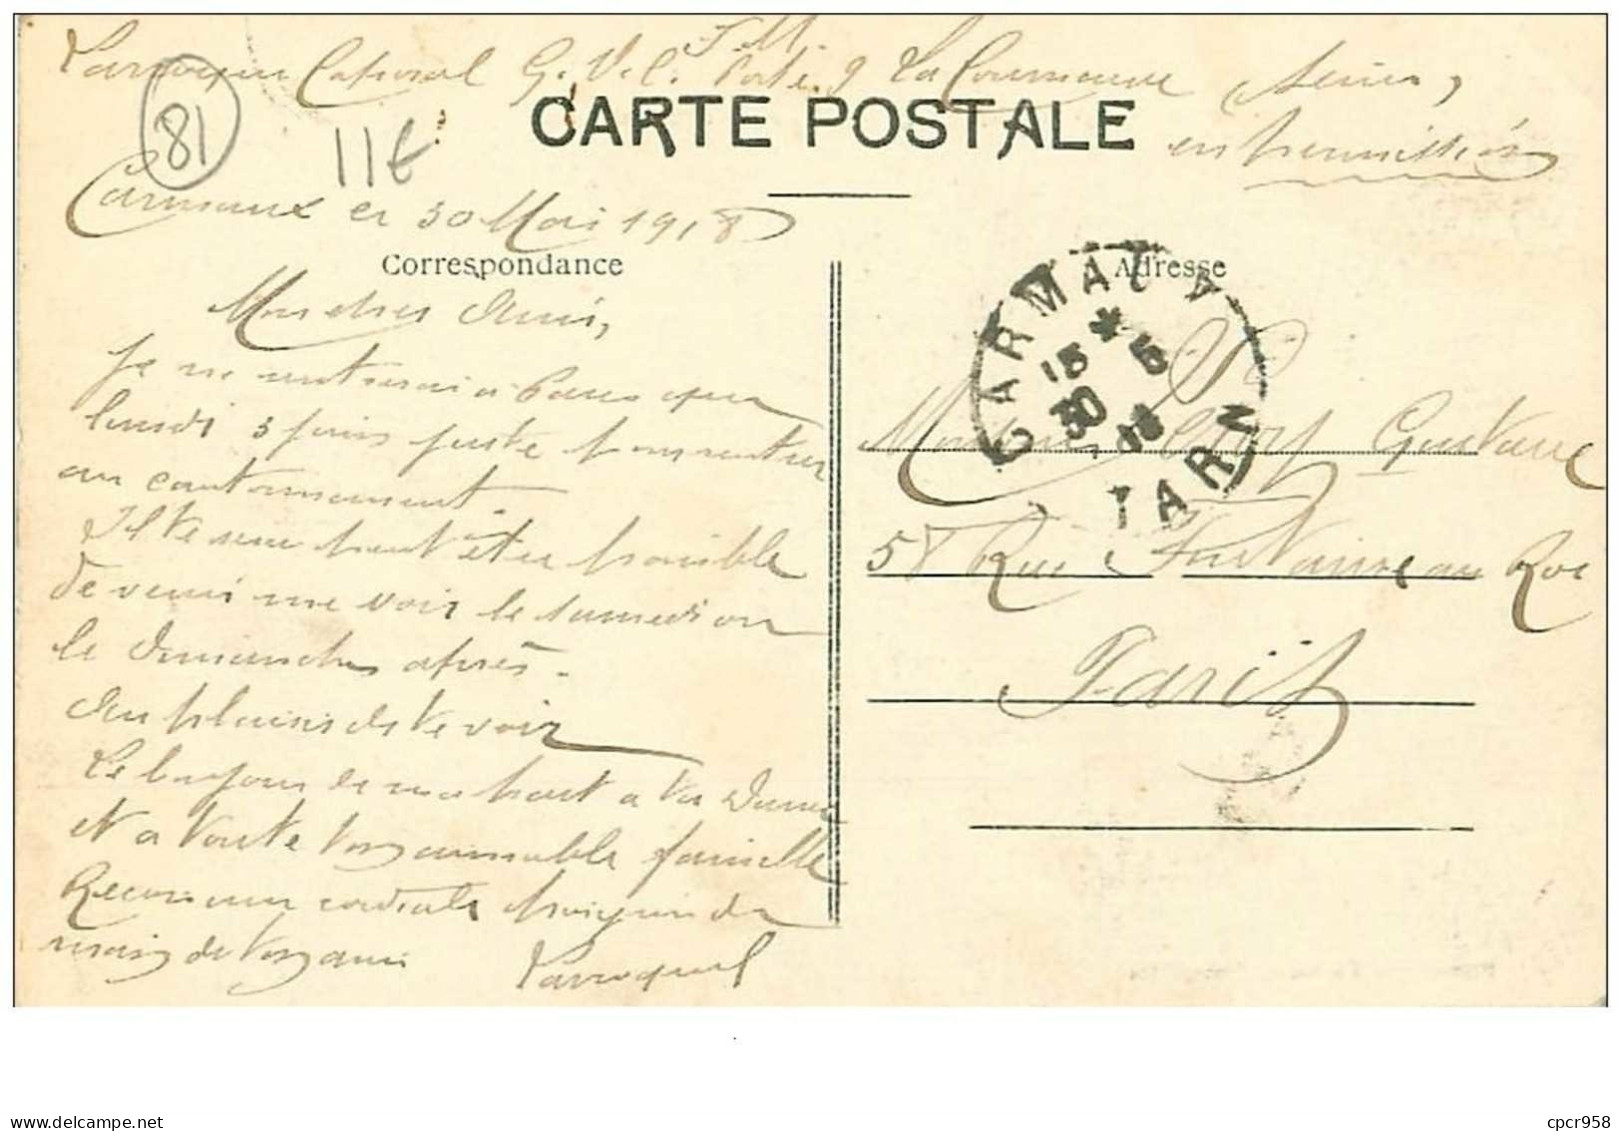 F. M.
Caporal G. V. C. Poste 9 La Courneuve Seine,
CARTE POSTALE
en permission
81
11€
Carmaux le 30 Mai 1918
Correspondance
Adresse
CARMAUX
15 * 5
30 18
TARN
Mon cher ami,
Je ne rentrerai à Paris que
lundi 3 juin juste pour rentrer
au cantonnement.
Il te sera peut être possible
de venir me voir le samedi ou
le dimanche après.
Au plaisir de te voir
Le bonjour de ma part a ta Dame
et a toute ton aimable famille
Reçois une cordiale poignée de
main de ton ami
Parroquel
Monsieur Gustave
58 Rue Fontaine au Roi
Paris
delcampe.net
cpcr958